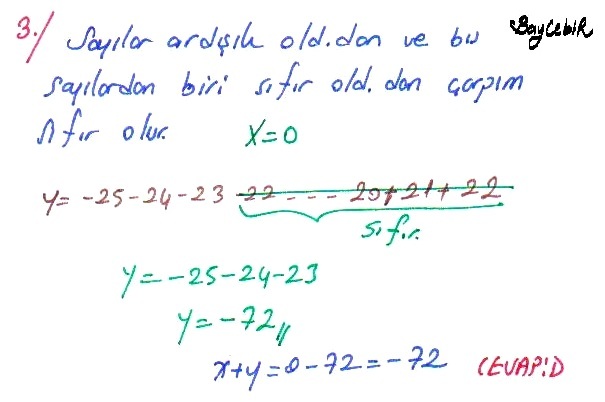 3./ Sayılar ardışık old.dan ve bu
BayCebiR
sayılardan biri sıfır old. dan çarpım
sıfır olur. X=0
y= -25-24-23 -22 - - - - 20+21+22
sıfır.
y=-25-24-23
y=-72//
x+y=0-72=-72 CEVAP:D